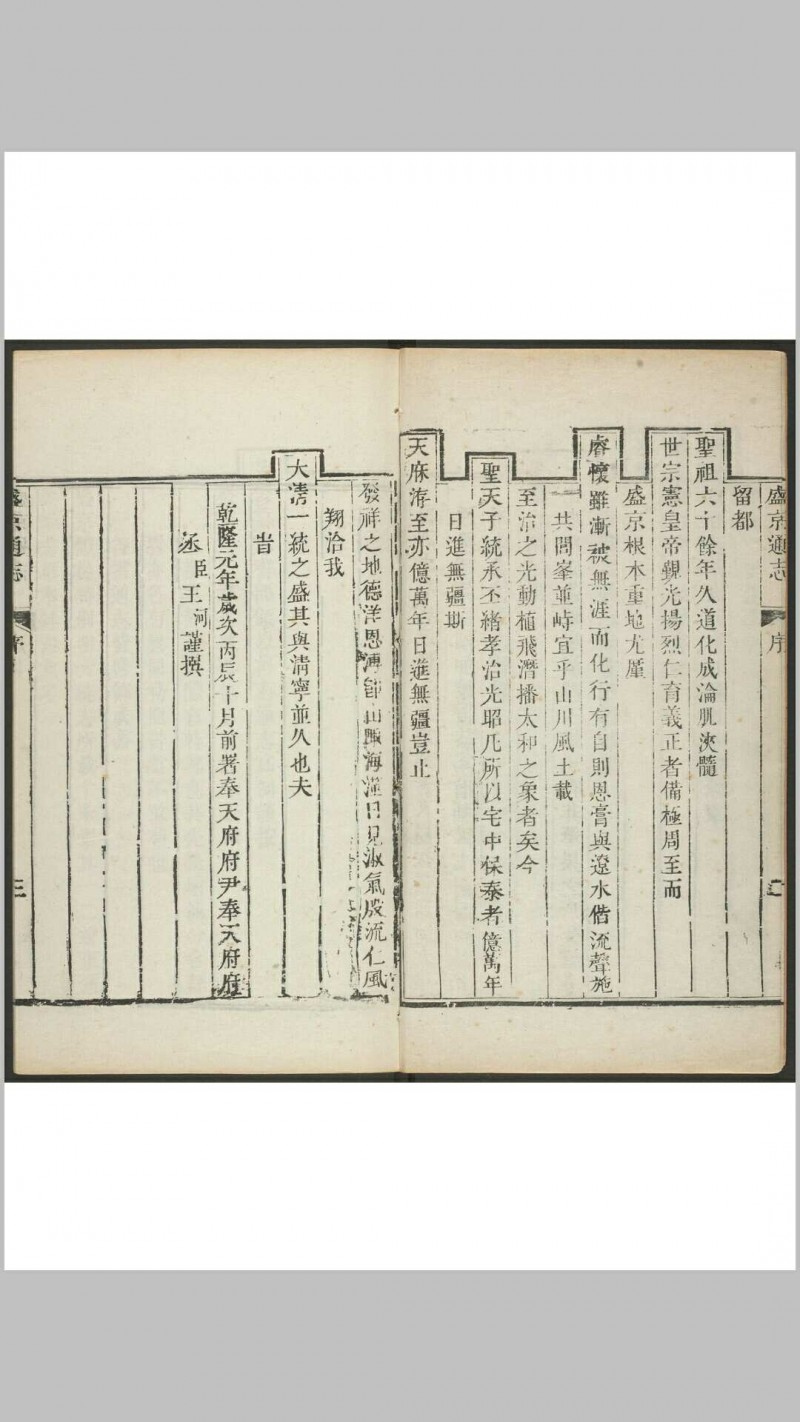 盛京通志 序 二
留都
聖祖六十餘年久道化成淪肌浹髓
世宗憲皇帝覲光揚烈仁育義正者備極周至而
盛京根本重地尤廑
睿懷雖漸被無涯而化行有自則恩膏與遼水偕流聲施
共閭峯並峙宜乎山川風土載
至治之光動植飛潛播太和之象者矣今
聖天子統承丕緒孝治光昭凡所以宅中保泰者億萬年
日進無疆斯
天庥洊至亦億萬年日進無疆豈止
發祥之地德洋恩溥 山陬海澨日見淑氣殷流仁風
翔洽我
大清一統之盛其與清寧並久也夫
旹
乾隆元年歲次丙辰十月前署奉天府府尹奉天府府
丞臣王河謹撰
盛京通志 序 三